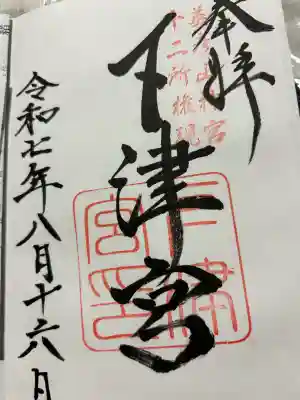 奉拝
十二所権現
下津宮
下津宮印
令和七年八月十六日